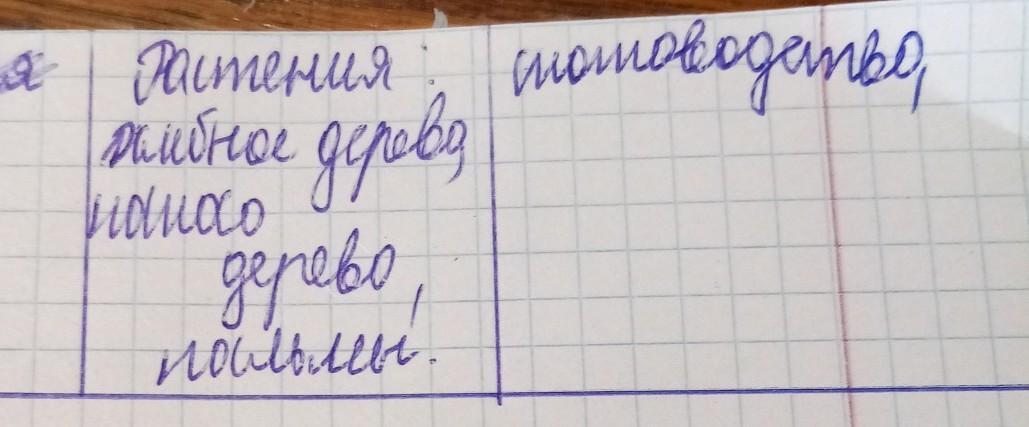 я
Растения:
хлебное дерево,
какао
дерево,
пальмы.
скотоводство,